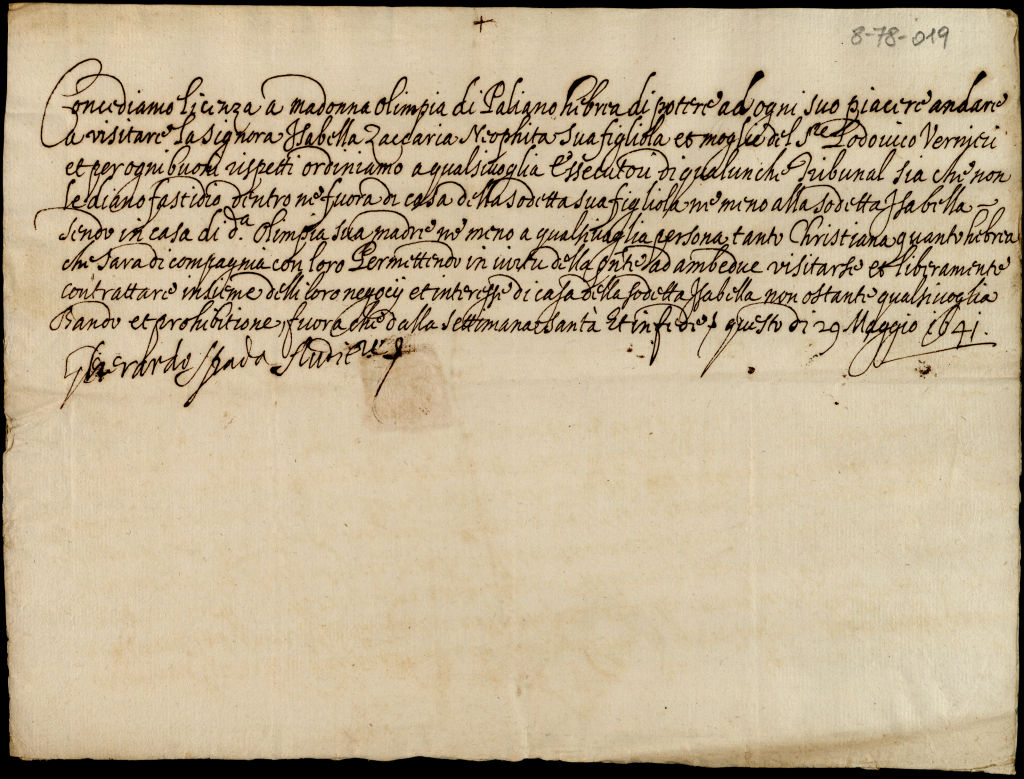 +
8-78-019
Concediamo licenza a madonna olimpia di Paliano hebrea di potere ad ogni suo piacere andare
a visitare la Signora Isabella Zaccaria Neophita sua figliola et moglie del S.re Lodovico Vernici
et per ogni buoni rispetti ordiniamo a qualsivoglia Essecutori di qualunche Tribunal sia che non
le diano fastidio dentro ne fuora di casa della sodetta sua figliola ne meno alla sodetta Isabella
sendo in casa di d.a Olimpia sua madre ne meno a qualsivoglia persona tanto Christiana quanto hebrea
che sara di compagnia con loro Permettendo in virtu della pnte ad ambedue visitarse et liberamente
contrattare insieme delli loro negoij et interesse di casa della sodetta Isabella non ostante qualsivoglia
Bando et prohibitione, fuora che dalla settimana santa Et in fede questo di 29 Maggio 1641.
Gherardo Spada Audit.re